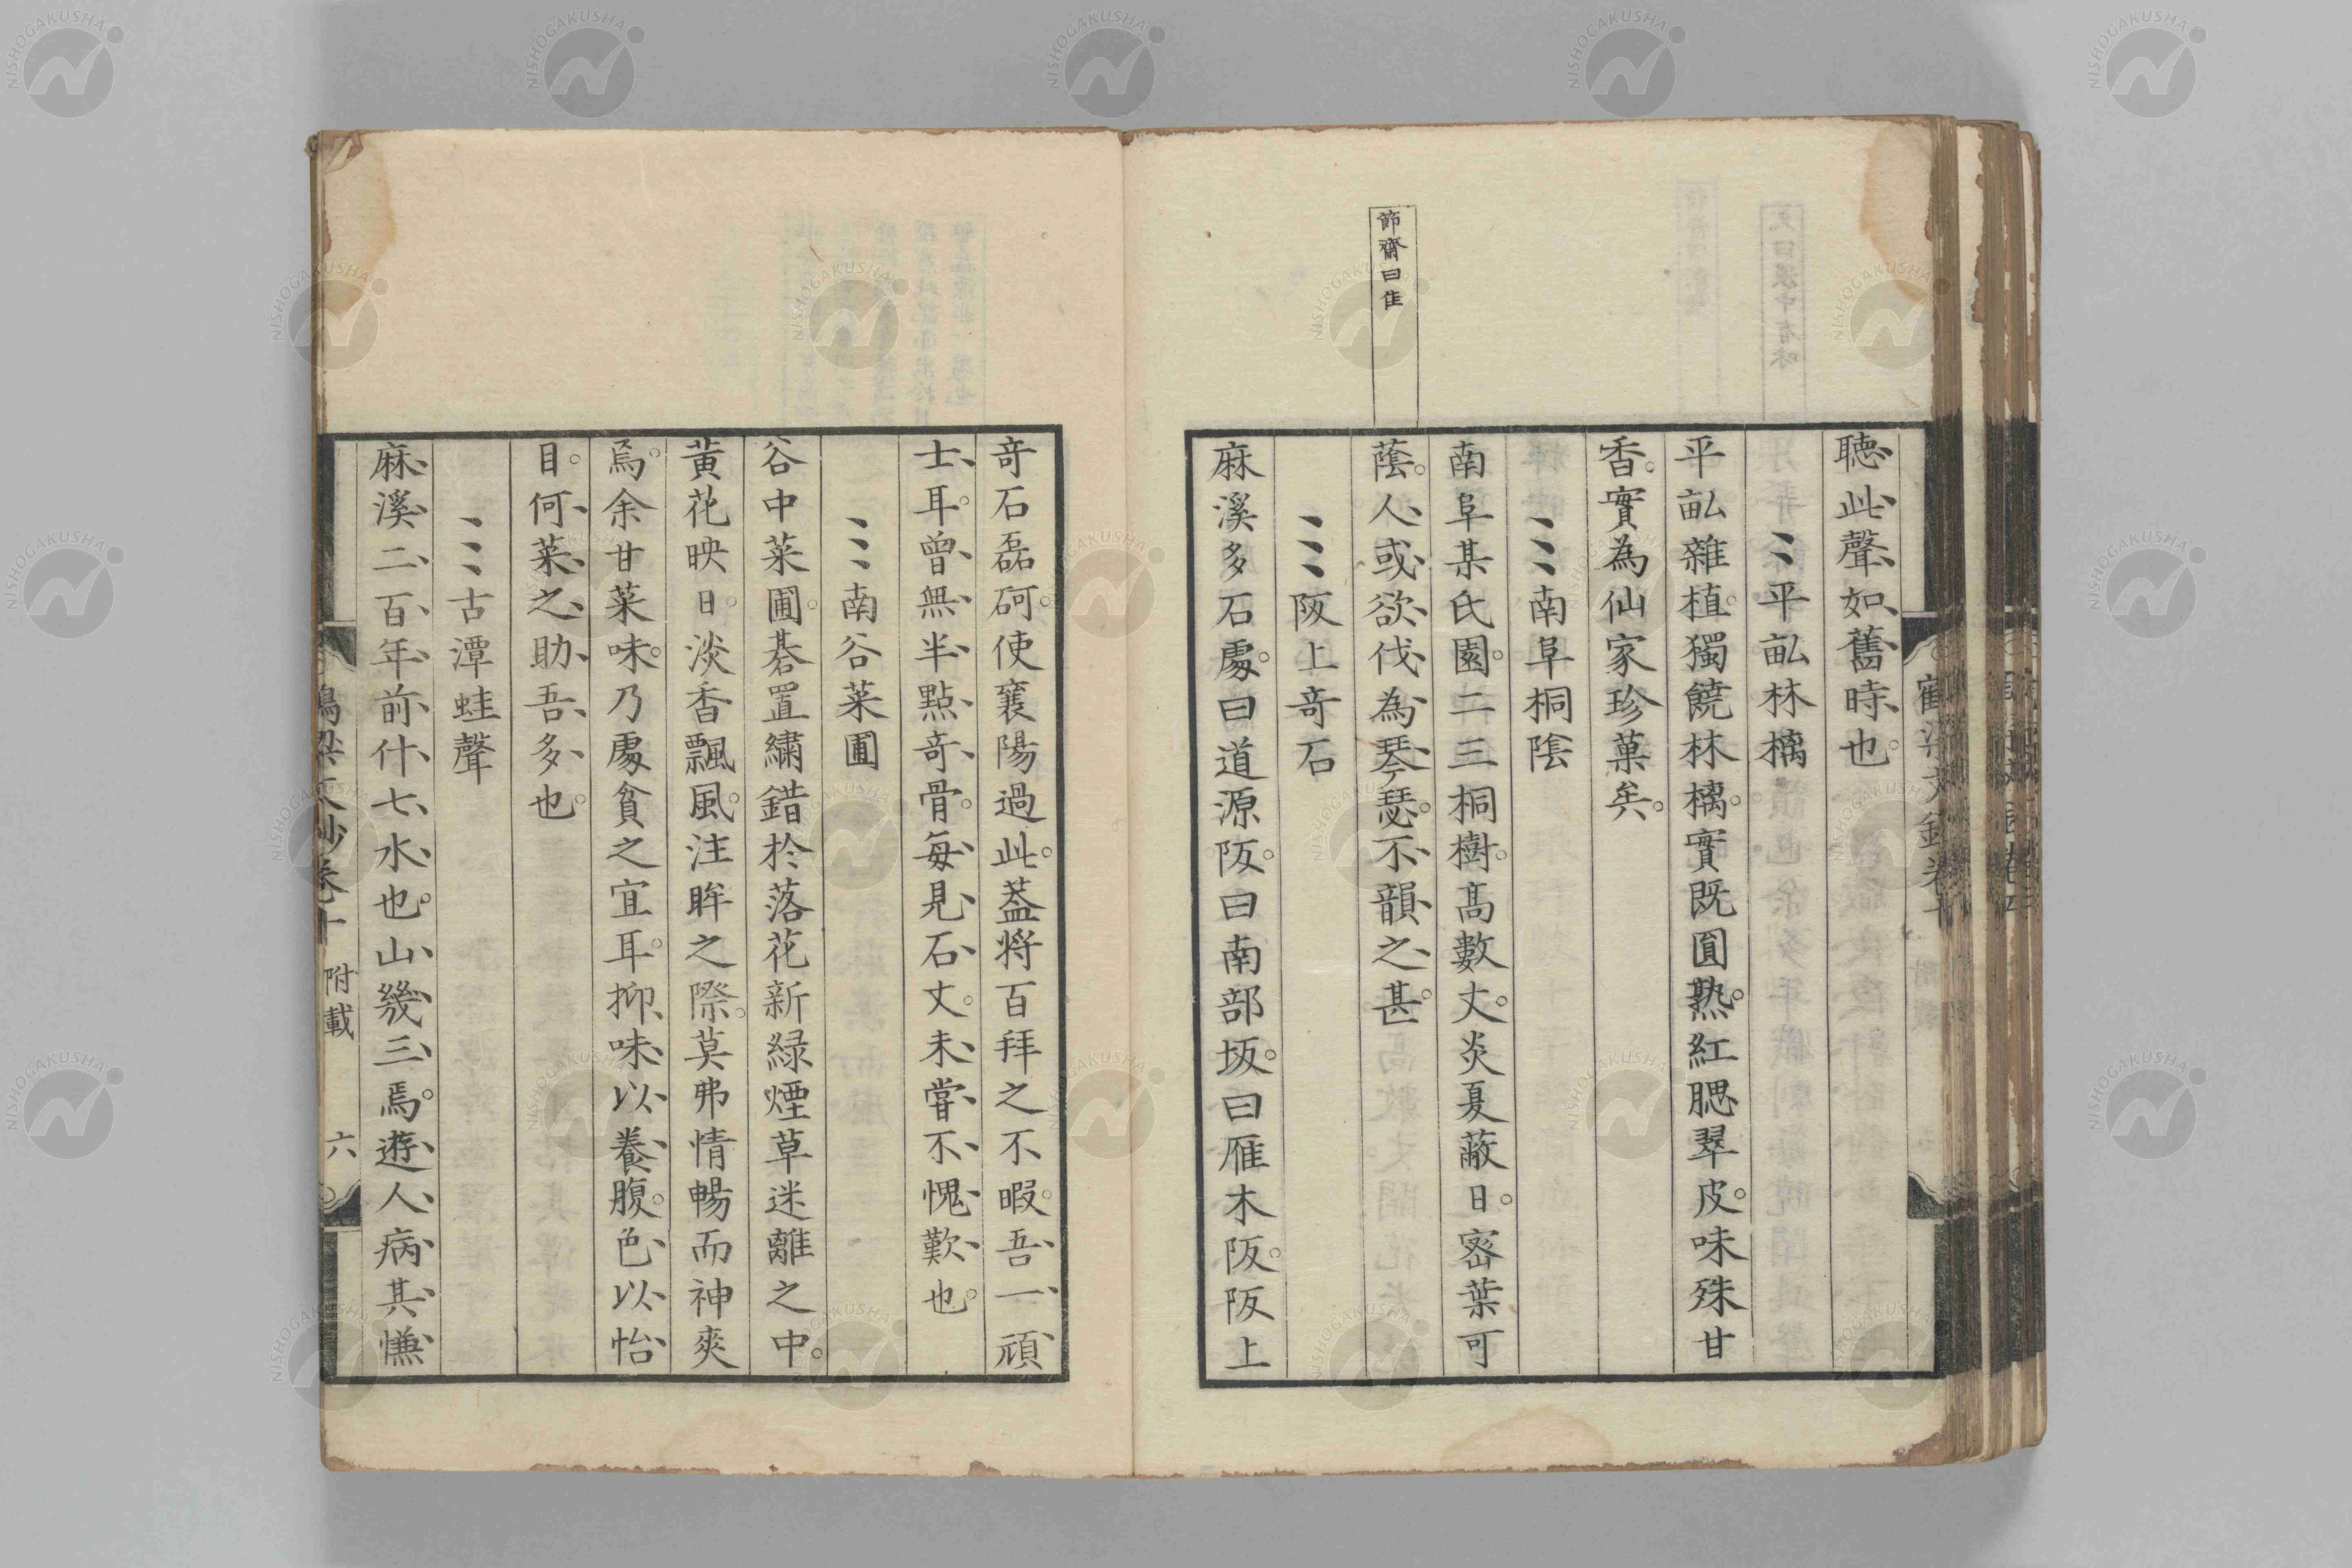 節齋曰佳
聴、此、聲、如、舊、時、也。
〻〻平畝林檎
平畝雜植。獨饒林檎。實既圓熟。紅腮翠皮。味殊甘
香。實為仙家珍菓矣。
〻〻南阜桐陰
南阜某氏園。二三桐樹。髙數丈。炎夏蔽日。宻葉可
蔭。人、或、欲、伐、為、琴、瑟。不、韻、之、甚。
〻〻阪上竒石
麻溪多石處。曰道源阪。曰南部坂。曰雁木阪。阪上
竒石磊砢。使襄陽過此。葢将百拜之不暇。吾、一、頑
士、耳。曾、無、半、點、竒、骨。毎、見、石、丈。未、嘗、不、愧、歎、也。
〻〻南谷菜圃
谷中菜圃。碁置繡錯於落花新緑煙草迷離之中。
黄花映日。淡香飄風。注眸之際。莫弗情暢而神爽
焉。余甘菜味。乃處貧之宜耳。抑味、以、養、腹。色、以、怡、
目。何、菜、之、助、吾、多、也。
〻〻古潭蛙聲
麻、溪、二、百、年、前、什、七、水、也。山、幾、三、焉。遊、人、病、其、慊、
附載
六
NISHOGAKUSHA